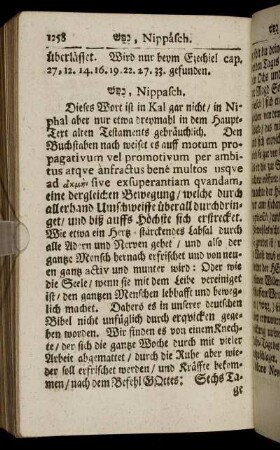 1258 נפש, Nippâsch.
überlässet. Wird nur beym Ezechiel cap.
27, 12. 14. 16. 19. 22. 27. 33. gefunden.
נפש, Nippasch.
Dieses Wort ist in Kal gar nicht / in Ni-
phal aber nur etwa dreymahl in dem Haupt-
Text alten Testaments gebräuchlich. Den
Buchstaben nach weiset es auff motum pro-
pagativum vel promotivum per ambi-
tus atqve ànfractus benè multos usqve
ad ἀκμήν sive exsuperantiam qvandam,
eine dergleichen Bewegung / welche durch
allerhand Umschweiffe überall durchdrin-
get / und biß auffs Höchste sich erstrecket.
Wie etwa ein Hertz-stärckendes Labsal durch
alle Adern und Nerven gehet / und also der
gantze Mensch hernach erfrischet und von neu-
en gantz activ und munter wird: Oder wie
die Seele / wenn sie mit dem Leibe vereiniget
ist / den gantzen Menschen lebhafft und beweg-
lich machet. Dahero es in unserer deutschen
Bibel nicht unfüglich durch erqvicken gege-
ben worden. Wir finden es von einem Knech-
te / der sich die gantze Woche durch mit vieler
Arbeit abgemattet / durch die Ruhe aber wie-
der soll erfrischet werden / und Kräffte bekom-
men / nach dem Befehl GOttes: Sechs Ta-
ge